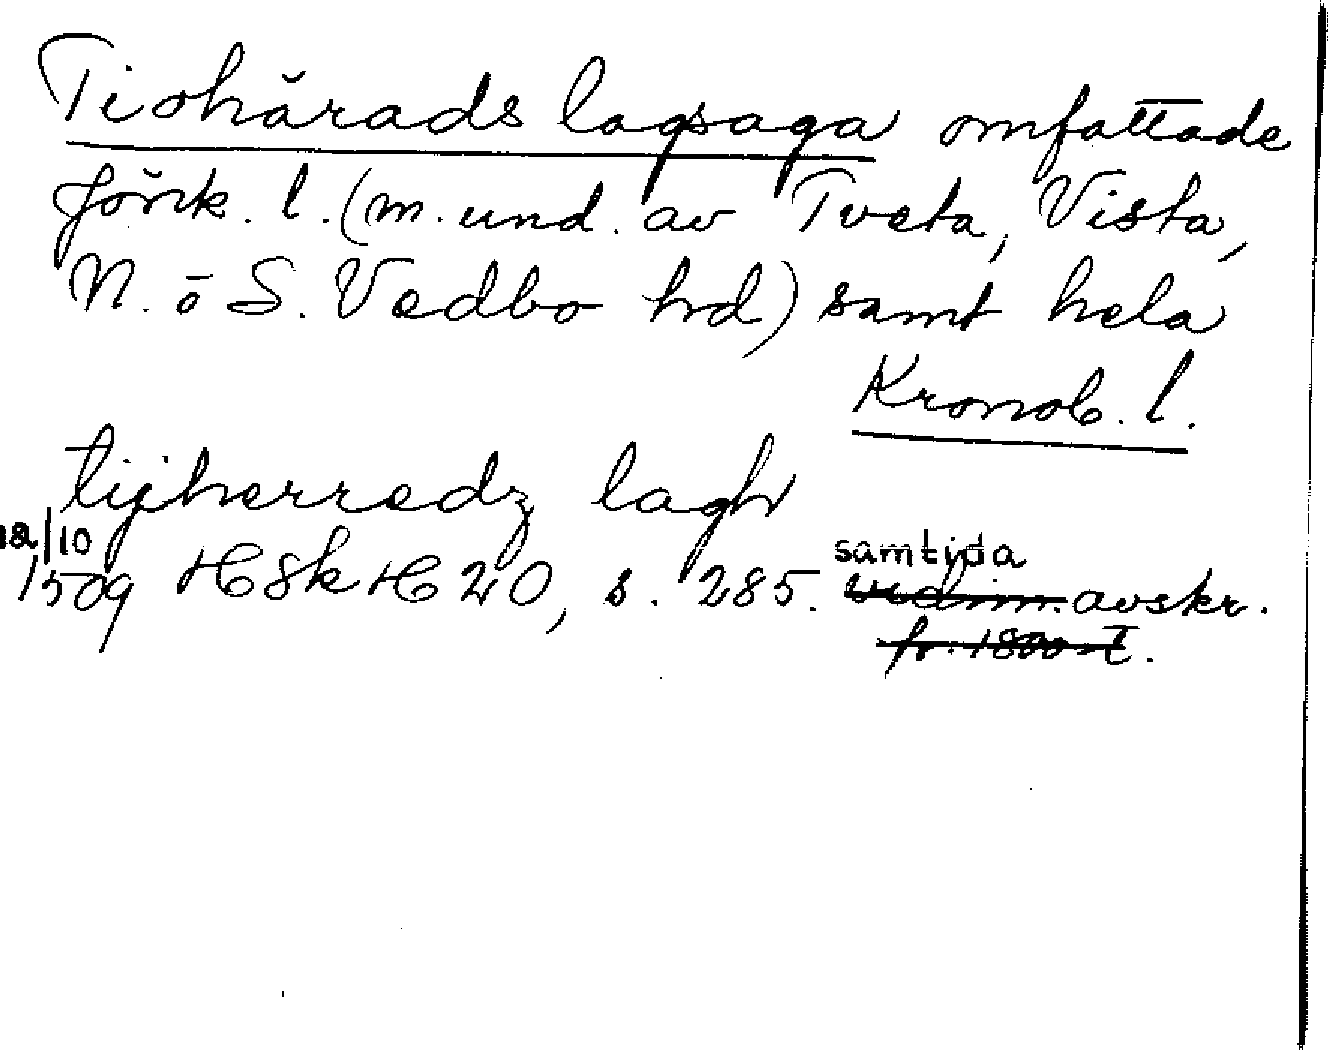 Tiohärads lagsaga omfattade
Jönk. l. (m. und. av Tveta, Vista,
N. o S. Vedbo hd) samt hela
Kronob. l.
tijherredz lagh
12/10
1509 HSk H 20, s. 285. samtida avskr.
fr. 1800-t.